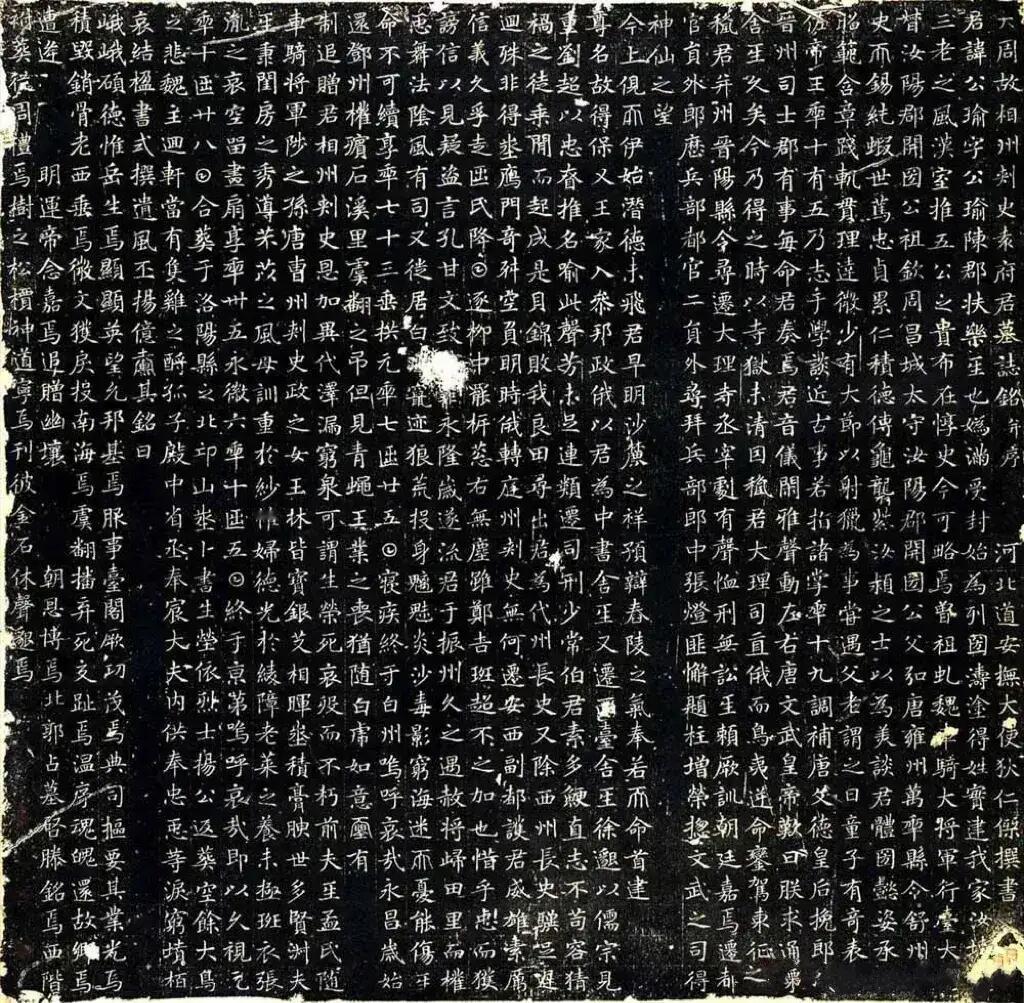 大周故相州刾史袁府君墓誌銘并序　河北道安撫大使狄仁傑撰書
君諱公瑜字公瑜陳郡扶樂𤯔也媯滿受封始為列圀濤塗得姓實建我家汝墳
三老之風漢室推五公之貴布在惇史今可略焉曾祖虬魏車騎大將軍行臺大
督汝陽郡開圀公祖欽周昌城太守汝陽郡開圀公父弘唐雍州萬𠡦縣令舒州
史而錫純嘏世篤忠貞累仁積德傳龜襲紫汝潁之士以為美談君體圀懿姿承
昭範含章踐軌貫理達微少有大節以射獵為事嘗遇父老謂之曰童子有奇表
佐帝王𠡦十有五乃志于學談近古事若指諸掌𠡦十九調補唐文德皇后挽郎
晉州司士郡有事每命君奏焉君音儀閑雅聲動左右唐文武皇帝歎曰朕求通事
舍𤯔久矣今乃得之時以寺獄未清因授君大理司直俄而島夷逆命鑾駕東征
授君并州晉陽縣令尋遷大理寺丞宰劇有聲恤刑無訟𤯔賴厥訓朝廷嘉焉遷都
官員外郎歷兵部都官二員外尋拜兵部郎中張燈匪懈題柱增榮揔文武之司得
神仙之望
今上俔𠀑伊始潛德未飛君早明沙麓之祥預辯舂陵之氣奉若𠀑命首建
尊名故得保乂王家入參邦政俄以君為中書舍𤯔又遷西臺舍𤯔徐邈以儒宗見
重劉超以忠眘推名喻此聲芳未足連類遷司刑少常伯君素多鯁直志不苟容猜
禍之徒乘閒而起成是貝錦敗我良田尋出君為代州長史又除西州長史驥足遐
迴殊非得埊鴈門奇舛空負明時俄轉庭州刾史無何遷安西副都護君威雄素厲
信義久孚走囝氏降𡆠逐柳中罷柝葱右無塵雖鄭吉班超不之加也惜乎忠而獲
謗信以見疑盜言孔甘文致永隆歲遂流君于振州久之遇赦將歸田里而權
𢘑舞法陰風有司又徙居白州竄迹狼荒投身魑魅炎沙毒影窮海迷𠀑憂能傷𤯔
命不可續享𠡦七十三垂拱元𠡦七囝廿五𡆠寢疾終于白州嗚呼哀哉永昌歲始
還鄧州權殯石溪里虞翻之弔但見青蠅王業之喪猶隨白虎如意璽有
制追贈君相州刾史恩加異代澤漏窮泉可謂生榮死哀歿而不朽前夫𤯔孟氏隨
車騎將軍陟之孫唐曹州刾史政之女玉林皆寶銀艾相暉埊積膏腴世多賢淑夫
𤯔秉閨房之秀導芣苡之風母訓重於紗帷婦德光於綾障老萊之養未極班衣張
胤之哀空留畫扇享𠡦卅五永徽六𠡦十囝五𡆠終于京第嗚呼哀哉即以久視元
𠡦十囝廿八𡆠合葬于洛陽縣之北邙山埊卜書生塋依烈士楊公返葬空餘大鳥
之悲魏主迴軒當有隻雞之酹孤子殿中省丞奉宸大夫內供奉忠𢘑等淚窮墳柏
哀結楹書式撰遺風丕揚億齡其銘曰
峨峨碩德惟岳生焉顯顯英望允邦基焉服事臺閣厥功茂焉典司樞要其業光焉
積毀銷骨老西垂焉微文獲戾投南海焉虞翻播弃死交趾焉溫序魂魄還故鄉焉
遭逢　明運帝念嘉焉追贈幽壤　朝恩博焉北郭占墓啓滕銘焉西階
祔葬從周禮焉樹之松檟神道寧焉刊彼金石休聲邈焉